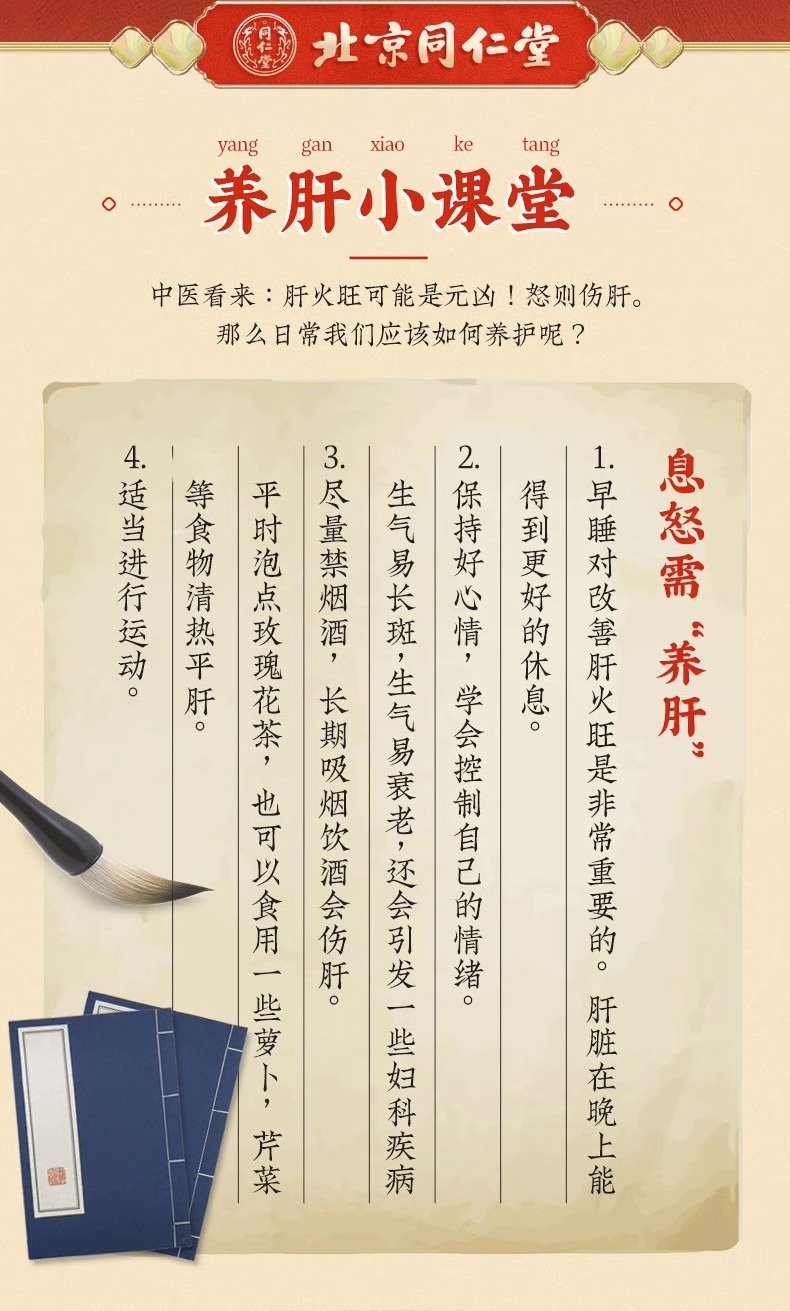 同仁堂
北京同仁堂
yang gan xiao ke tang
养肝小课堂
中医看来：肝火旺可能是元凶！怒则伤肝。
那么日常我们应该如何养护呢？
息怒需“养肝”
1.早睡对改善肝火旺是非常重要的。肝脏在晚上能
得到更好的休息。
2.保持好心情，学会控制自己的情绪。
生气易长斑，生气易衰老，还会引发一些妇科疾病
3.尽量禁烟酒，长期吸烟饮酒会伤肝。
平时泡点玫瑰花茶，也可以食用一些萝卜，芹菜
等食物清热平肝。
4.适当进行运动。